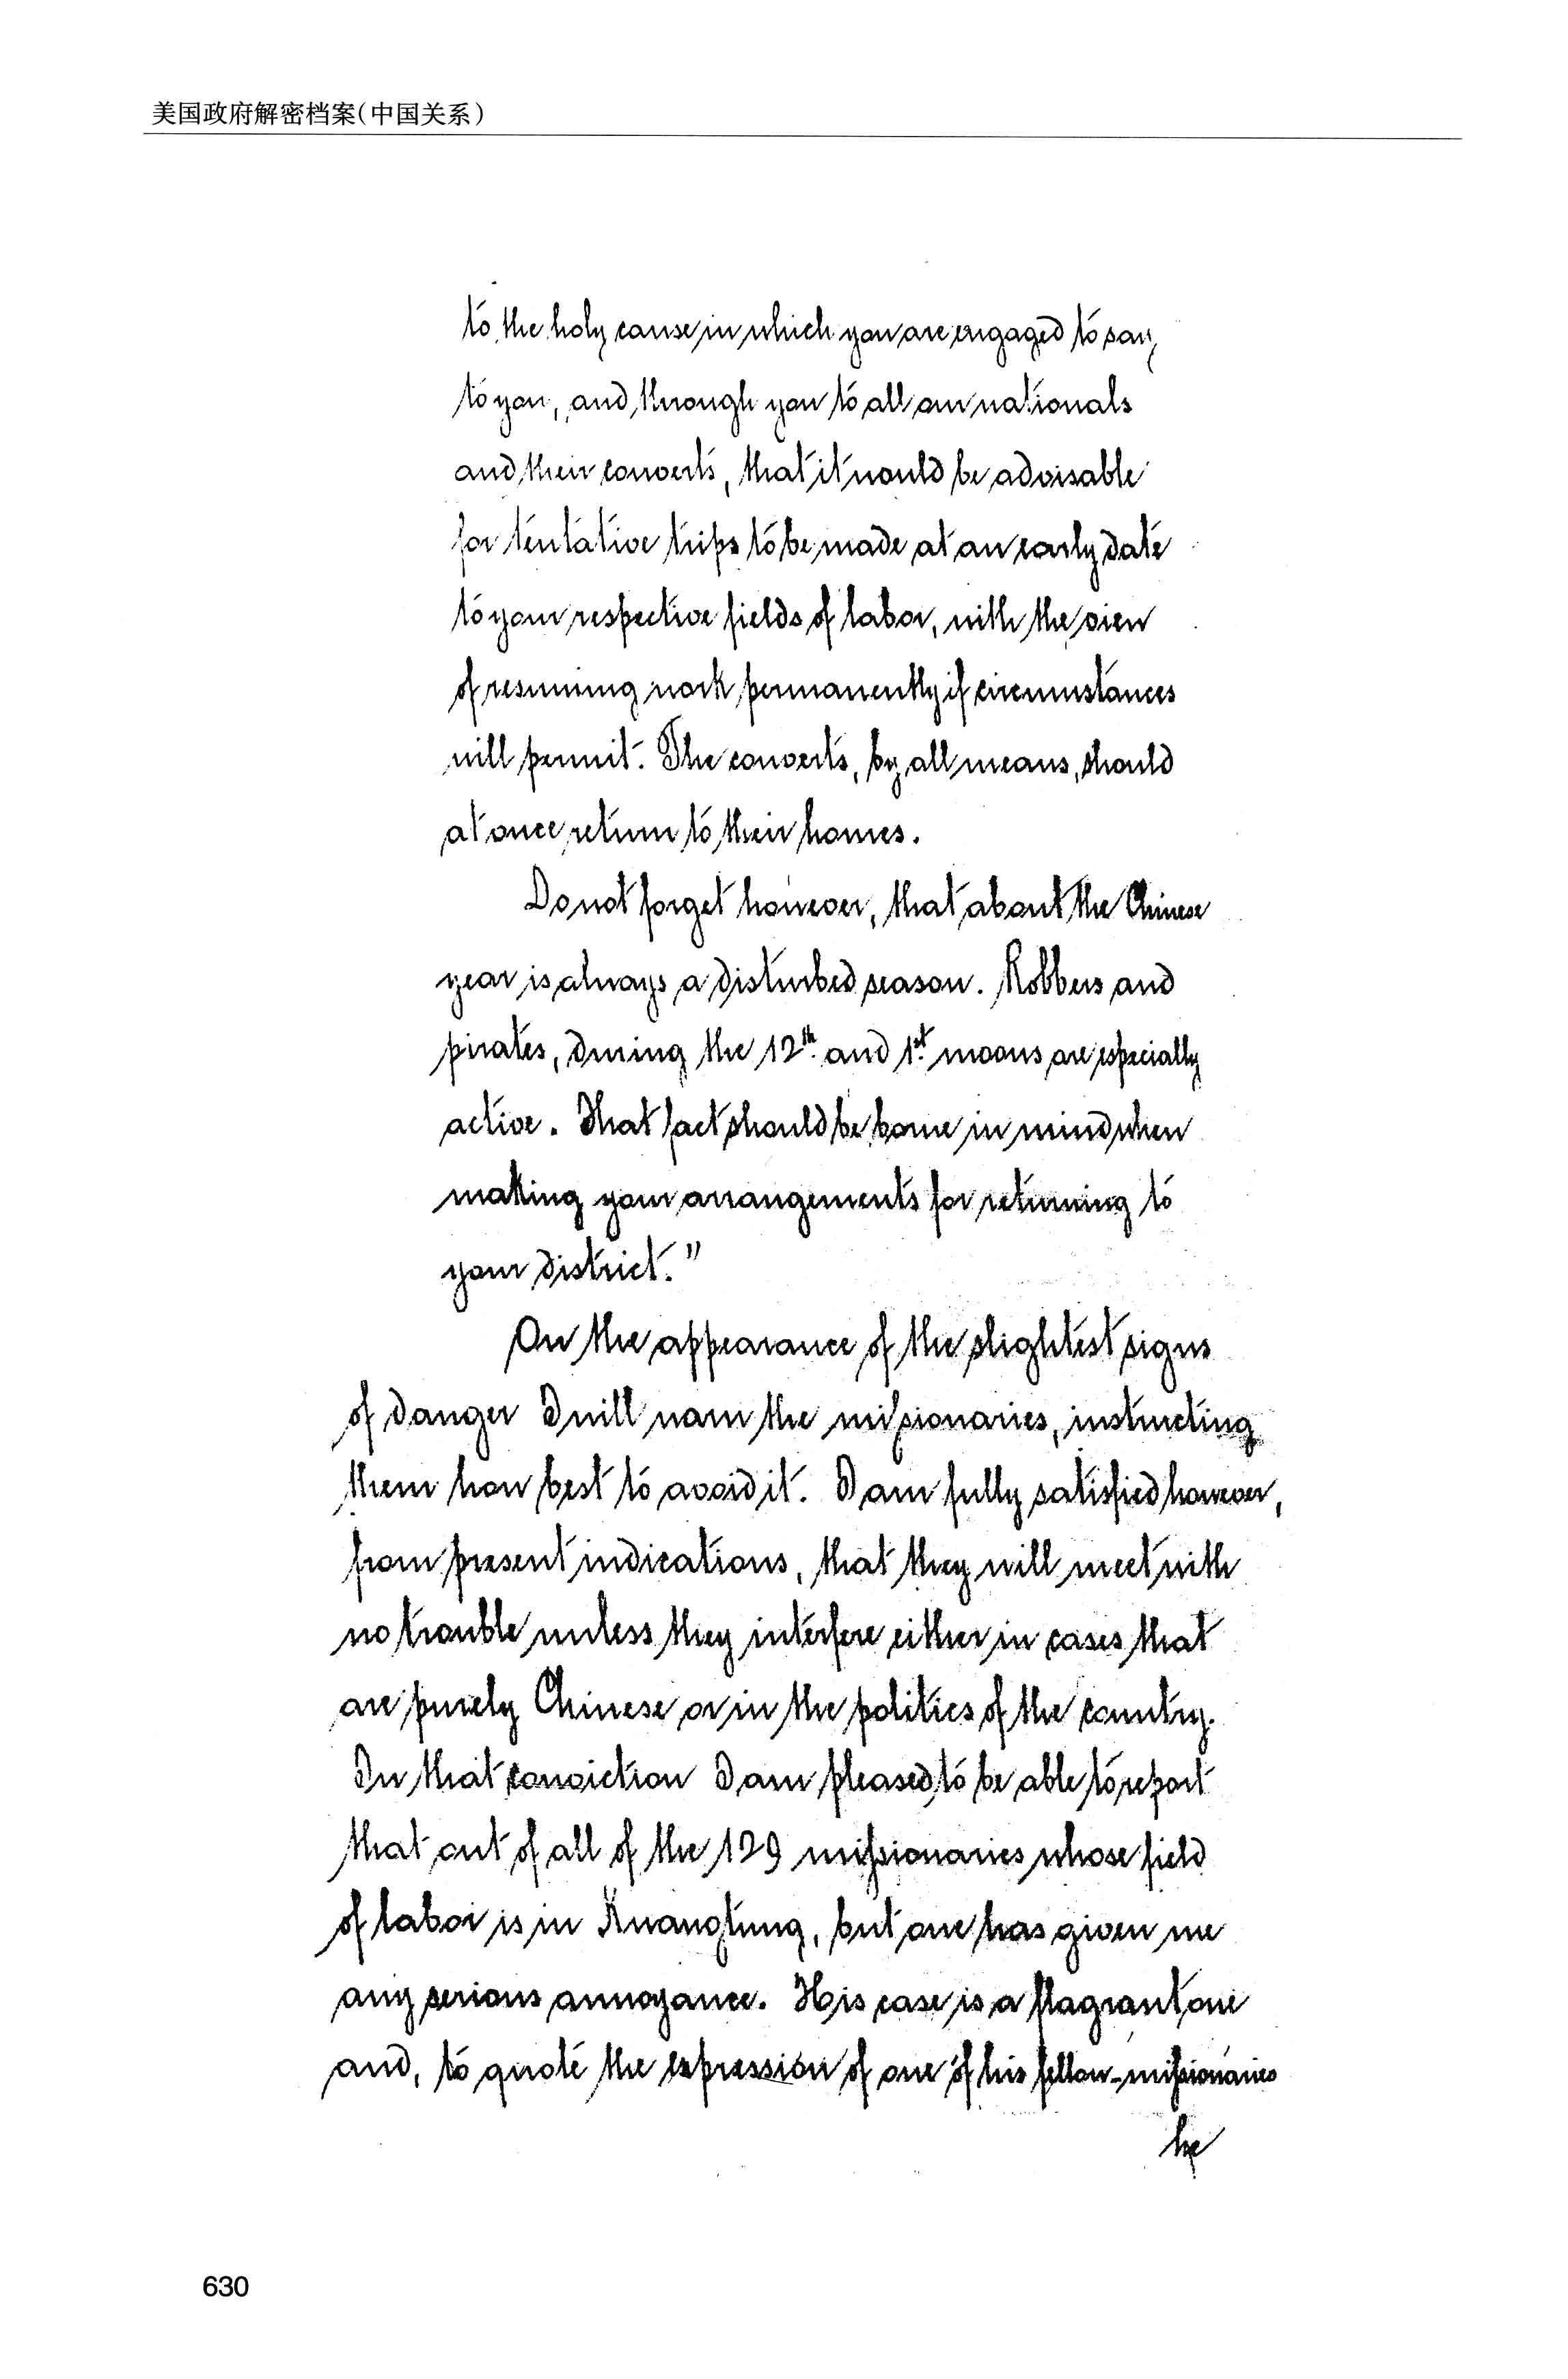 美国政府解密档案(中国关系)
to the holy cause in which you are engaged to say,
to you, and through you to all our nationals
and their converts, that it would be advisable
for tentative trips to be made at an early date
to your respective fields of labor, with the view
of resuming work permanently if circumstances
will permit. The converts, by all means, should
at once return to their homes.
Do not forget however, that about the Chinese
year is always a disturbed season. Robbers and
pirates, during the 12th. and 1st. moons are especially
active. That fact should be borne in mind when
making your arrangements for returning to
your district."
On the appearance of the slightest signs
of danger I will warn the missionaries, instructing
them how best to avoid it. I am fully satisfied however,
from present indications, that they will meet with
no trouble unless they interfere either in cases that
are purely Chinese or in the politics of the country.
In that conviction I am pleased to be able to report
that out of all of the 129 missionaries whose field
of labor is in Kuangtung, but one has given me
any serious annoyance. His case is a flagrant one
and, to quote the expression of one of his fellow-missionaries
he
630